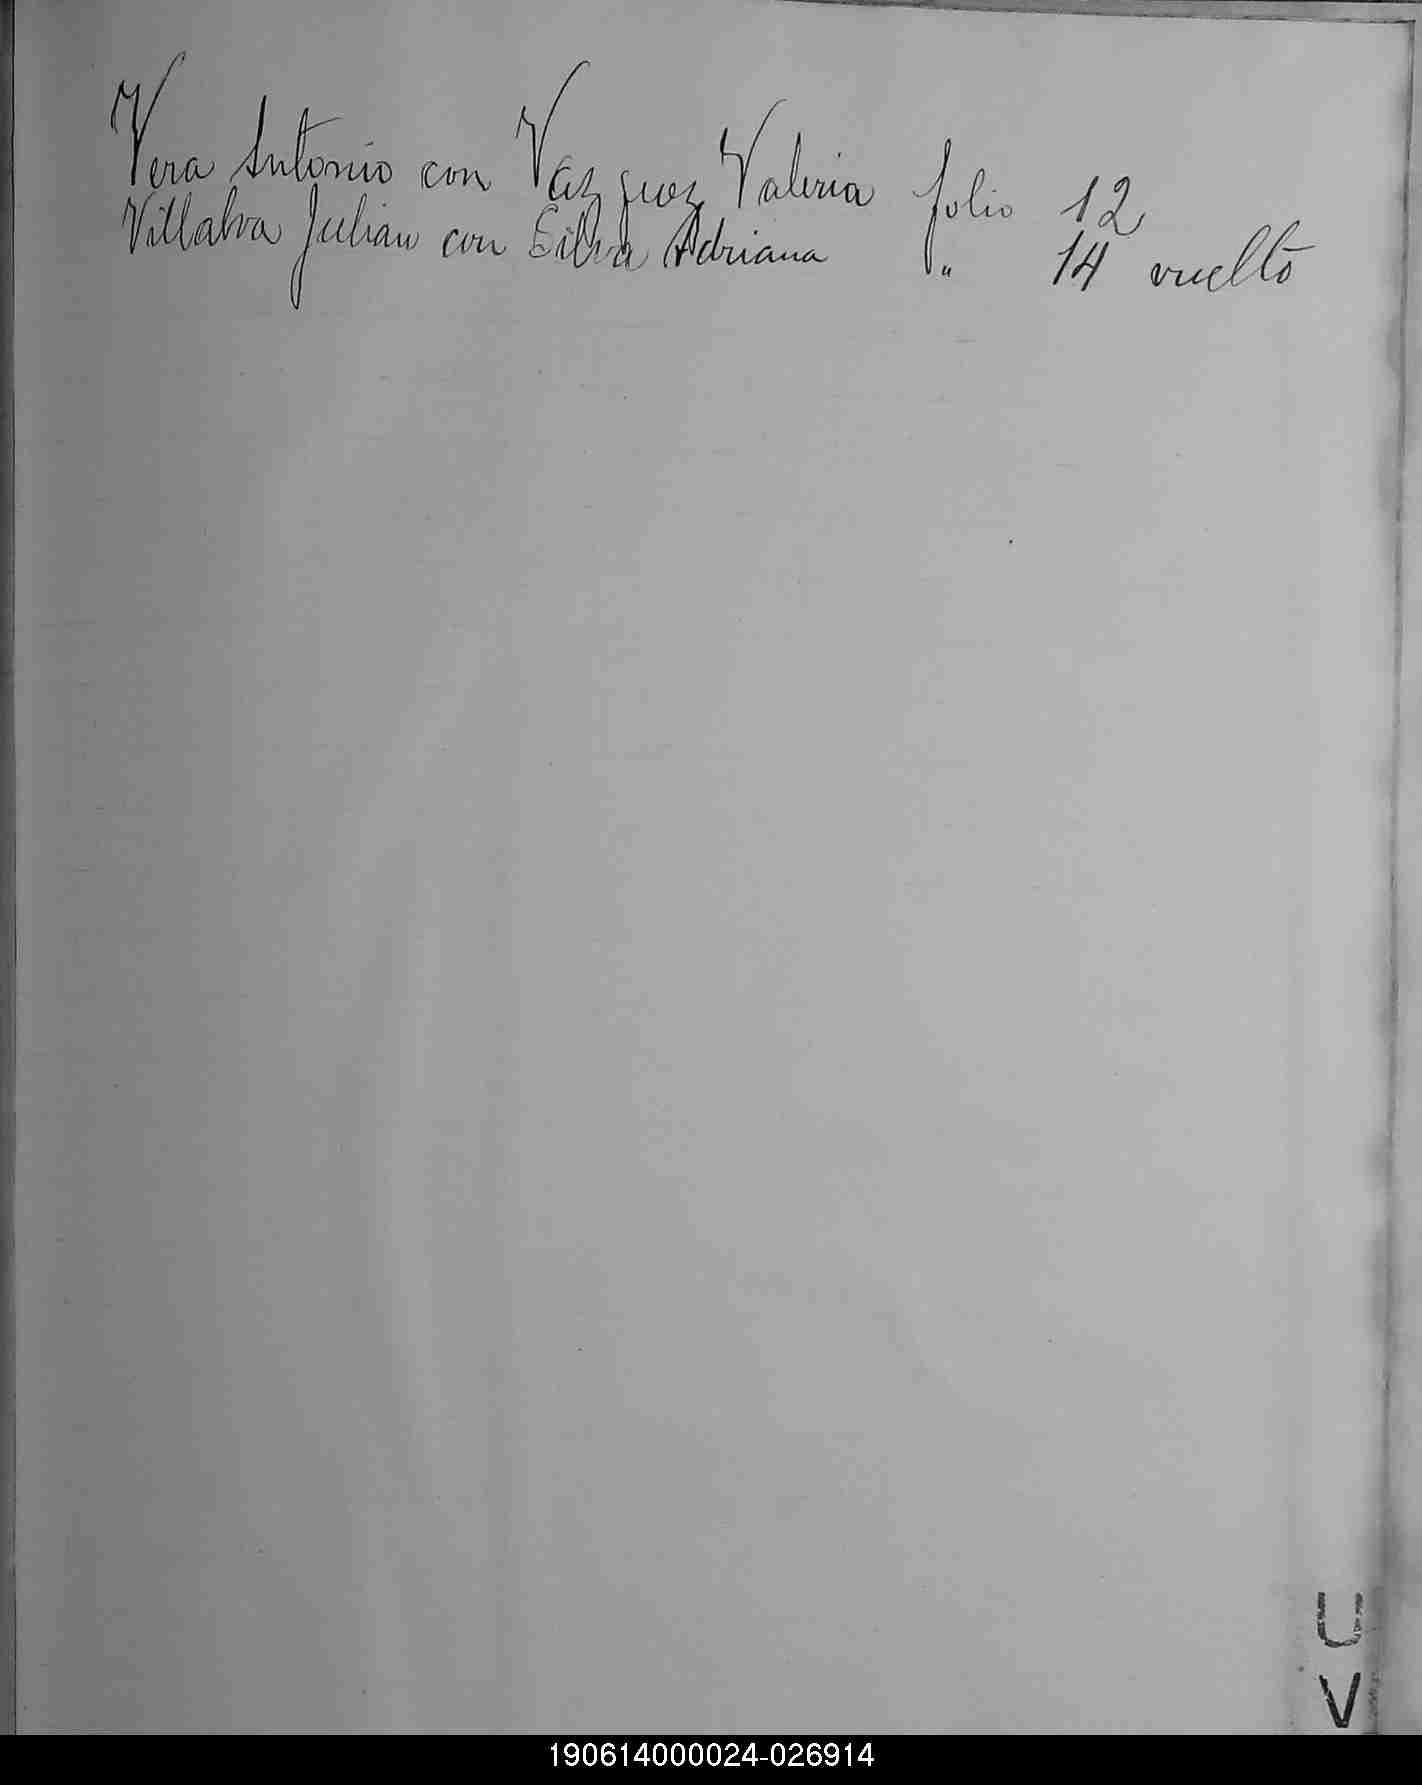 Vera Antonio con Vazquez Valeria folio 12
Villalva Julian con Silva Adriana " 14 vuelto
U
V
190614000024-026914